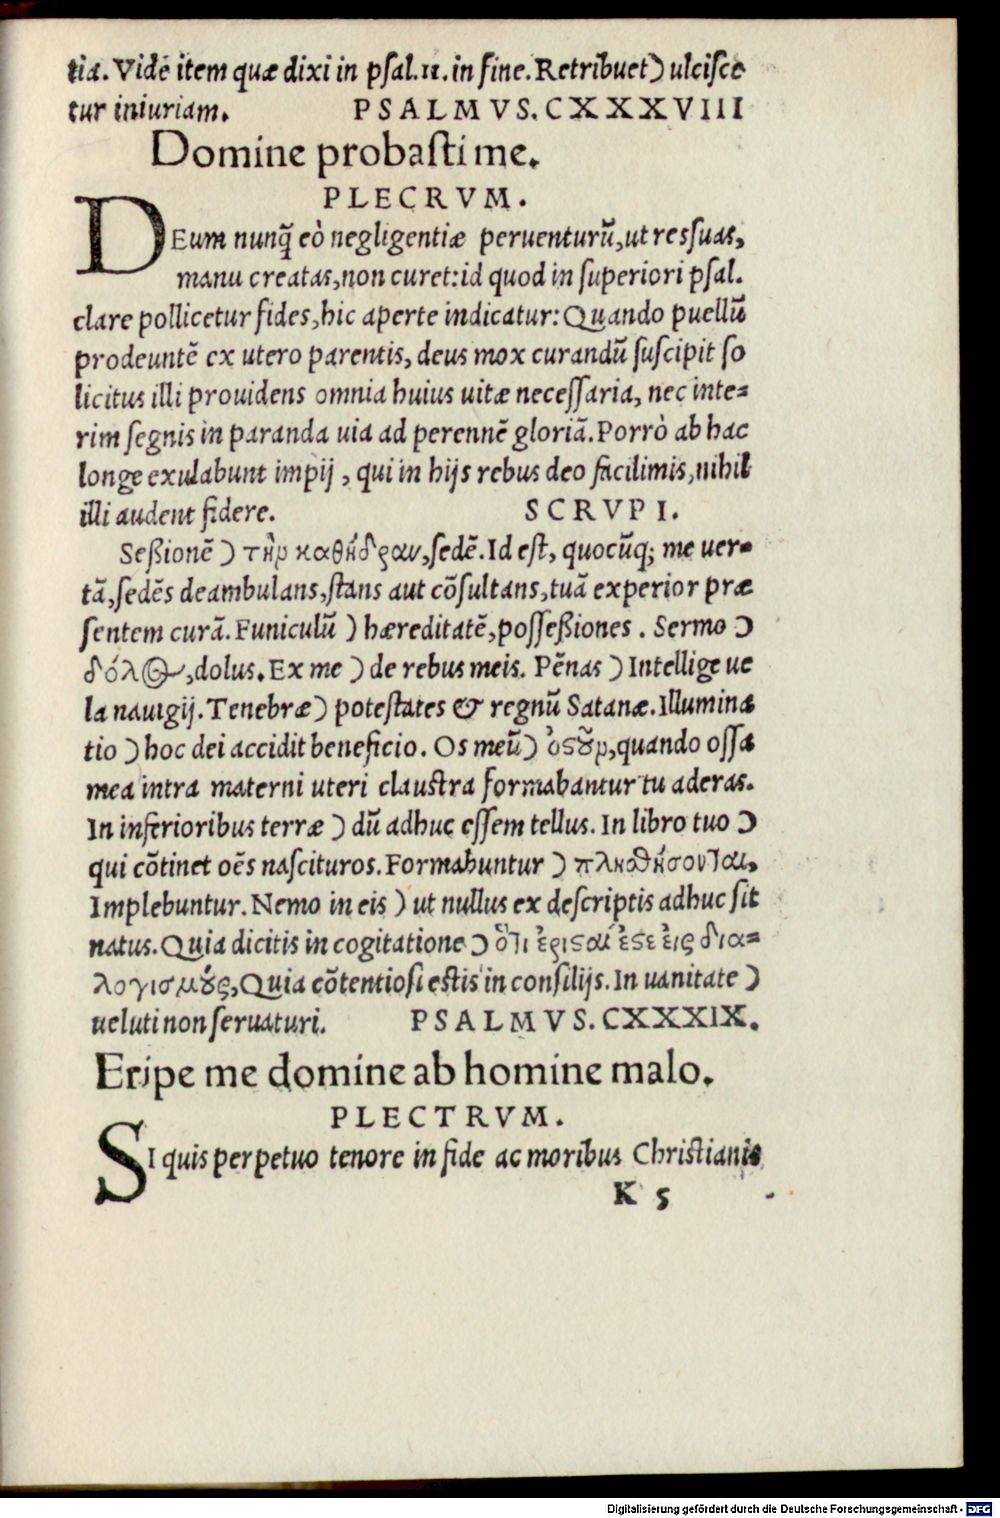 tia. Vidē item quæ dixi in pſal. 11. in fine. Retribuet) ulciſce
tur iniuriam. PSALMVS. CXXXVIII
Domine probaſti me.
PLECRVM.
DEum nunq̃ eò negligentiæ peruenturū, ut res ſuas,
manu creatas, non curet: id quod in ſuperiori pſal.
clare pollicetur fides, hic aperte indicatur: Quando puellū
prodeuntē ex utero parentis, deus mox curandū ſuſcipit ſo
licitus illi prouidens omnia huius uitæ neceſſaria, nec inte=
rim ſegnis in paranda uia ad perennē gloriā. Porrò ab hac
longe exulabunt impij, qui in hijs rebus deo facilimis, nihil
illi audent fidere. SCRVPI.
Seßionē) τὴν καθέδραν, ſedē. Id eſt, quocūq; me uer=
tā, ſedēs deambulans, ſtans aut cōſultans, tuā experior præ
ſentem curā. Funiculū) hæreditatē, poſſeßiones. Sermo)
δόλος, dolus. Ex me) de rebus meis. Pēnas) Intellige ue
la nauigij. Tenebræ) poteſtates & regnū Satanæ. Illumina
tio) hoc dei accidit beneficio. Os meū) ὀςοῦν, quando oſſa
mea intra materni uteri clauſtra formabantur tu aderas.
In inferioribus terræ) dū adhuc eſſem tellus. In libro tuo)
qui cōtinet oēs naſcituros. Formabuntur) πληθήσονται,
Implebuntur. Nemo in eis) ut nullus ex deſcriptis adhuc ſit
natus. Quia dicitis in cogitatione) ὅτι ἐρισαί ἐςε εἰς δια=
λογισμούς, Quia cōtentioſi eſtis in conſilijs. In uanitate)
ueluti non ſeruaturi. PSALMVS. CXXXIX.
Eripe me domine ab homine malo.
PLECTRVM.
SI quis perpetuo tenore in fide ac moribus Chriſtianis
K 5
Digitalisierung gefördert durch die Deutsche Forschungsgemeinschaft - DFG